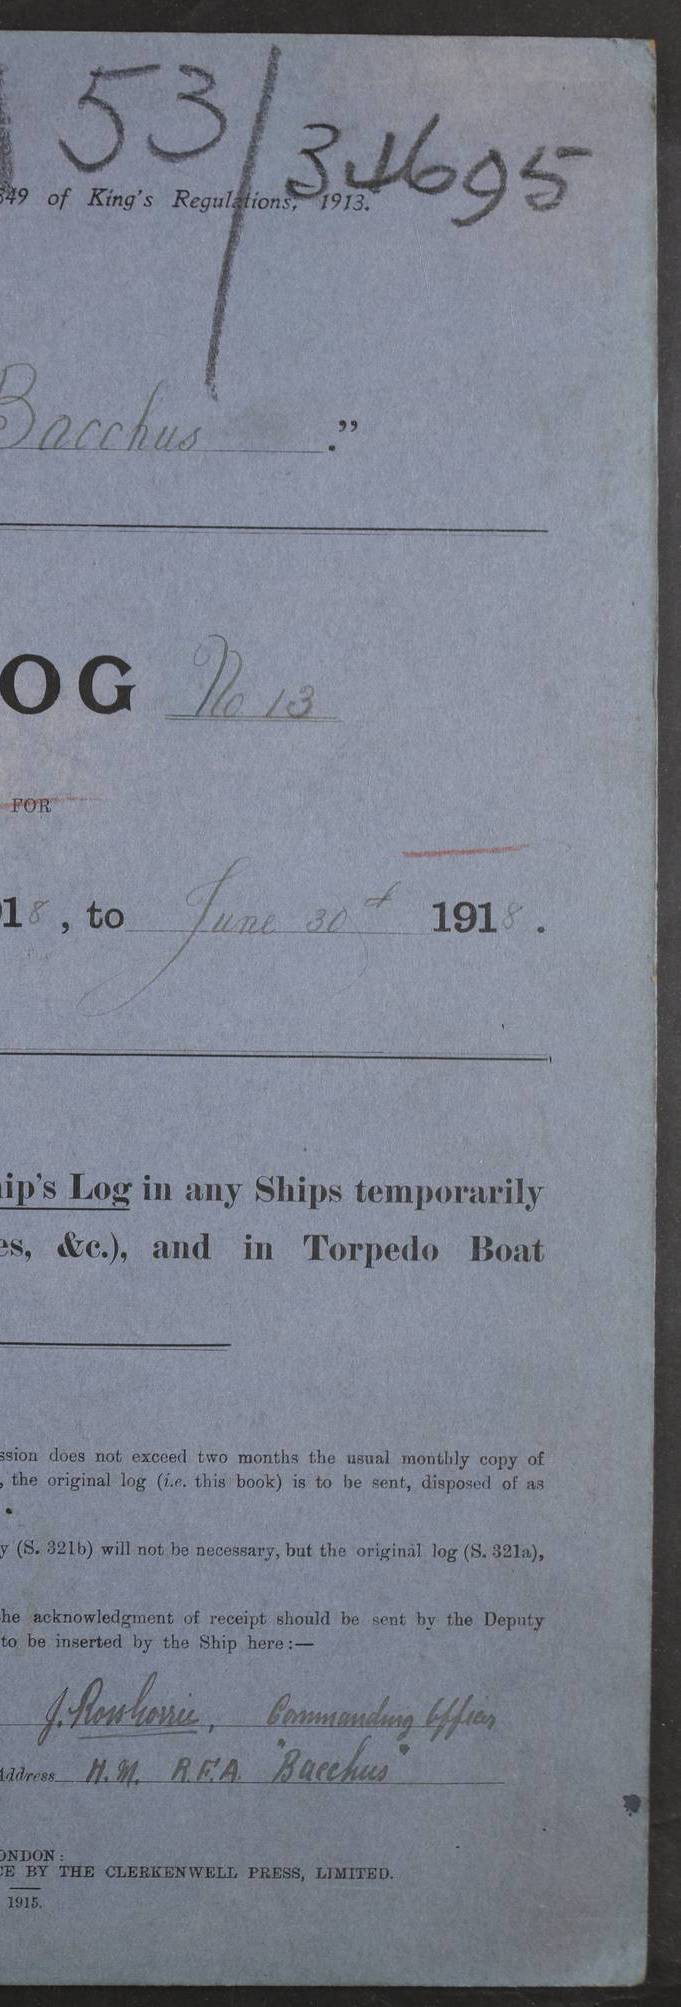 53/34695
349 of King's Regulations, 1913.
Bacchus ."
OG No 13
FOR
1918, to June 30th 1918.
ip's Log in any Ships temporarily
es, &c.), and in Torpedo Boat
ssion does not exceed two months the usual monthly copy of
, the original log (i.e. this book) is to be sent, disposed of as
y (S. 321b) will not be necessary, but the original log (S. 321a),
he acknowledgment of receipt should be sent by the Deputy
to be inserted by the Ship here:—
J. Commanding Officer
Address H.M. R.F.A. "Bacchus"
ONDON:
CE BY THE CLERKENWELL PRESS, LIMITED.
1915.